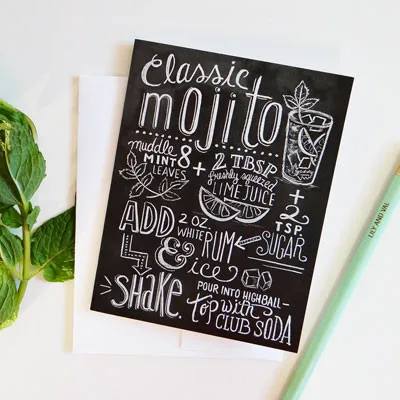 Classic
mojito
muddle 8 + 2 TBSP
MINT LEAVES freshly squeezed
LIME JUICE +
ADD 2 OZ. WHITE RUM 2 TSP. SUGAR
& ice
SHAKE. POUR INTO HIGHBALL—
Top with CLUB SODA
LILY AND VAL